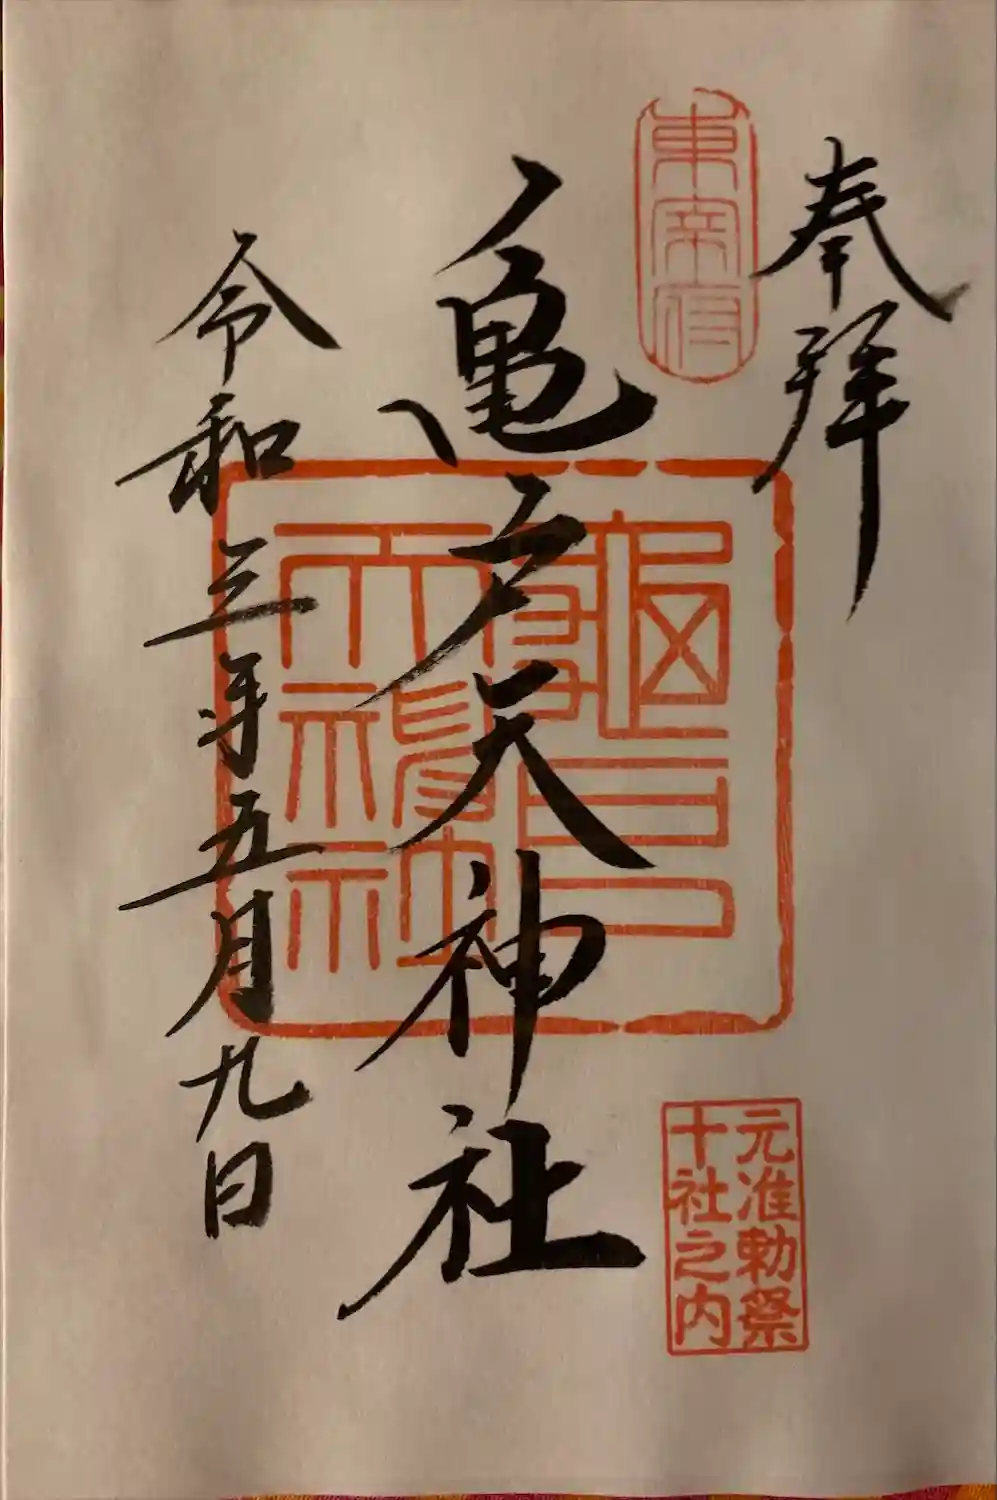 奉拝
東宰府
亀戸天神社
元准勅祭
十社之内
令和三年五月九日